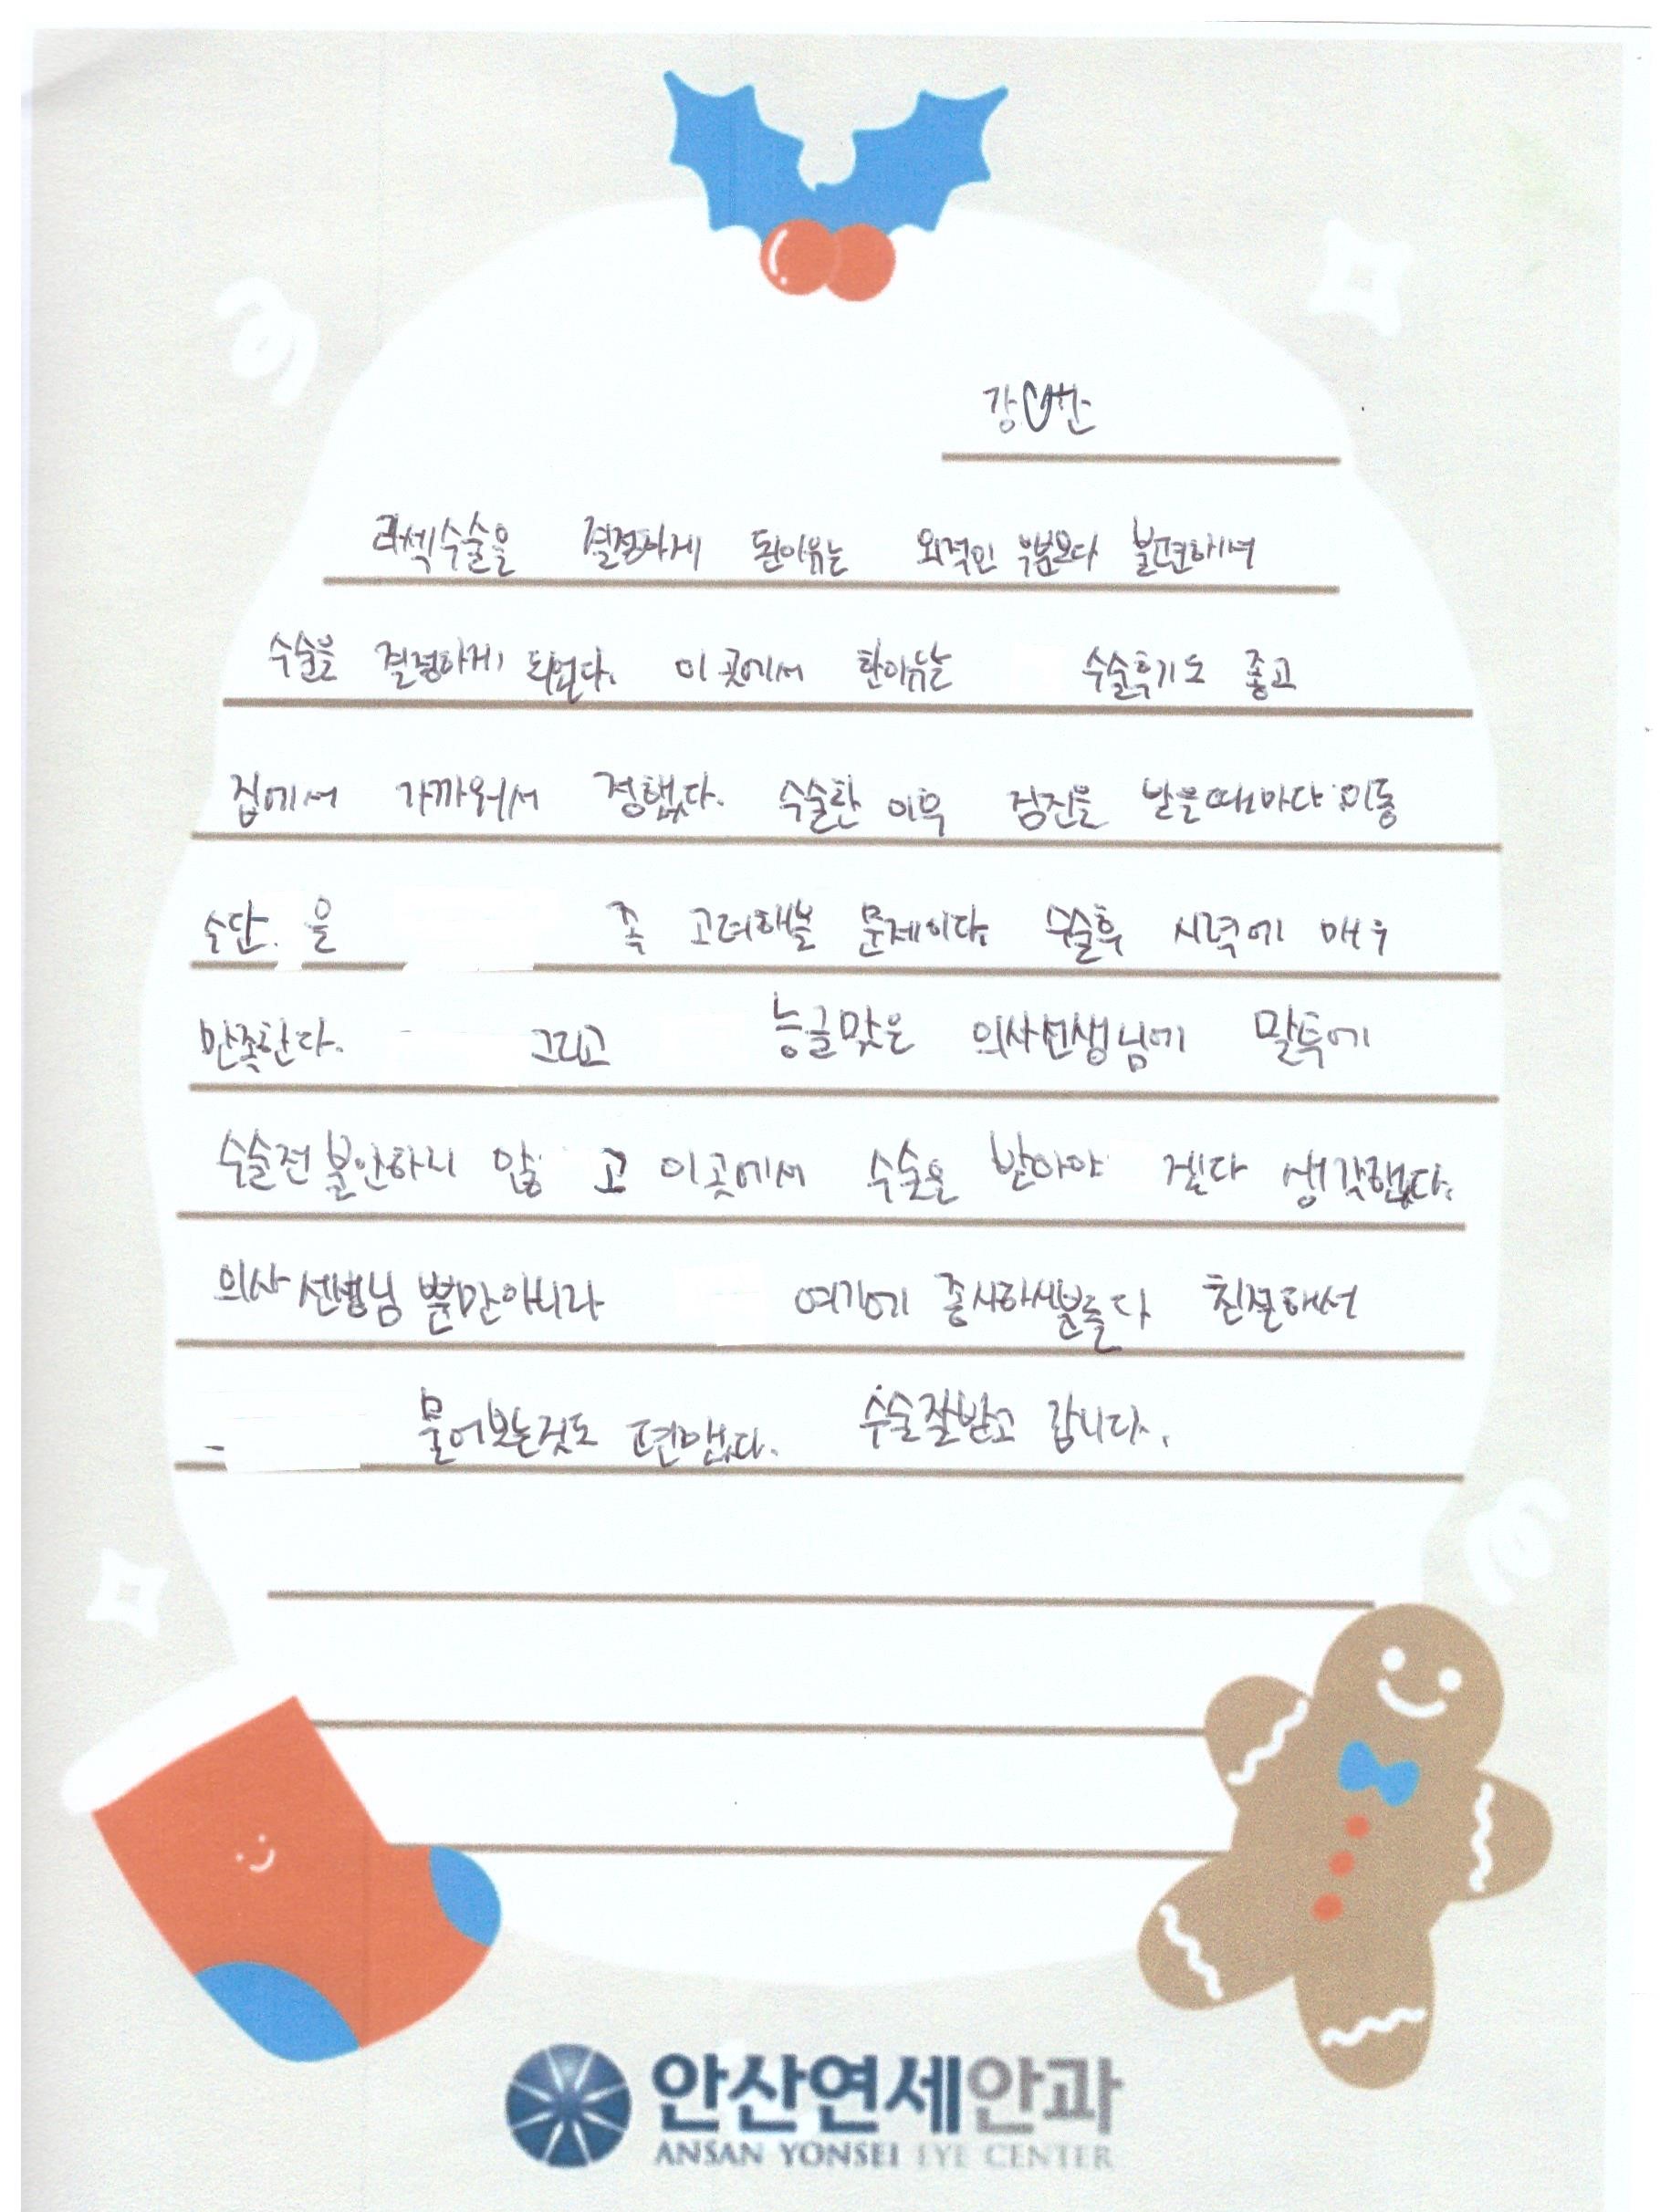 강♡한
라섹수술을 결정하게 된이유는 외적인 부분보다 불편해서
수술을 결정하게 되었다. 이 곳에서 한이유는 수술후기도 좋고
집에서 가까워서 정했다. 수술한 이후 검진을 받을때마다 이동
수단 을 쫌 고려해볼 문제이다. 수술후 시력에 매우
만족한다. 그리고 능글맞은 의사선생님에 말투에
수술전 불안하니 않 고 이곳에서 수술을 받아야 겠다 생각했다.
의사선생님 뿐만아니라 여기에 종사하시분들 다 친절해서
물어보는것도 편했다. 수술잘받고 갑니다.
안산연세안과
ANSAN YONSEI EYE CENTER